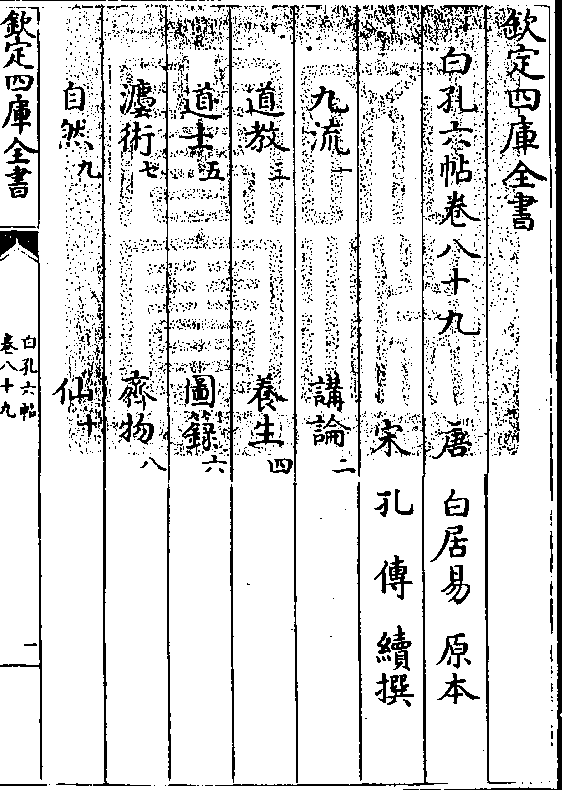 欽定四庫全書
白孔六帖卷八十九
唐 白居易 原本
宋 孔傳 續撰
九流一 講論二
道教三 養生四
道士五 圖籙六
瀘術七 齊物八
自然九 仙十
欽定四庫全書
白孔六帖
卷八十九
一